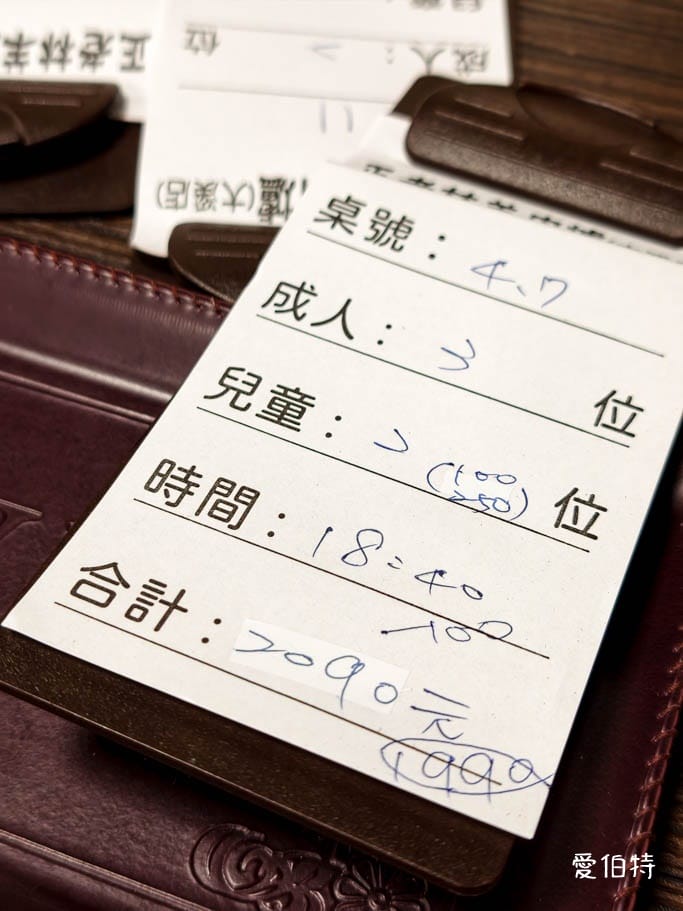 正老林羊
成人： 2 位
11
爐(大溪店)
桌號： 4、7
成人： 3 位
兒童： 2 (100 250) 位
時間： 18:40
-100
合計： 2090元
1990
愛伯特